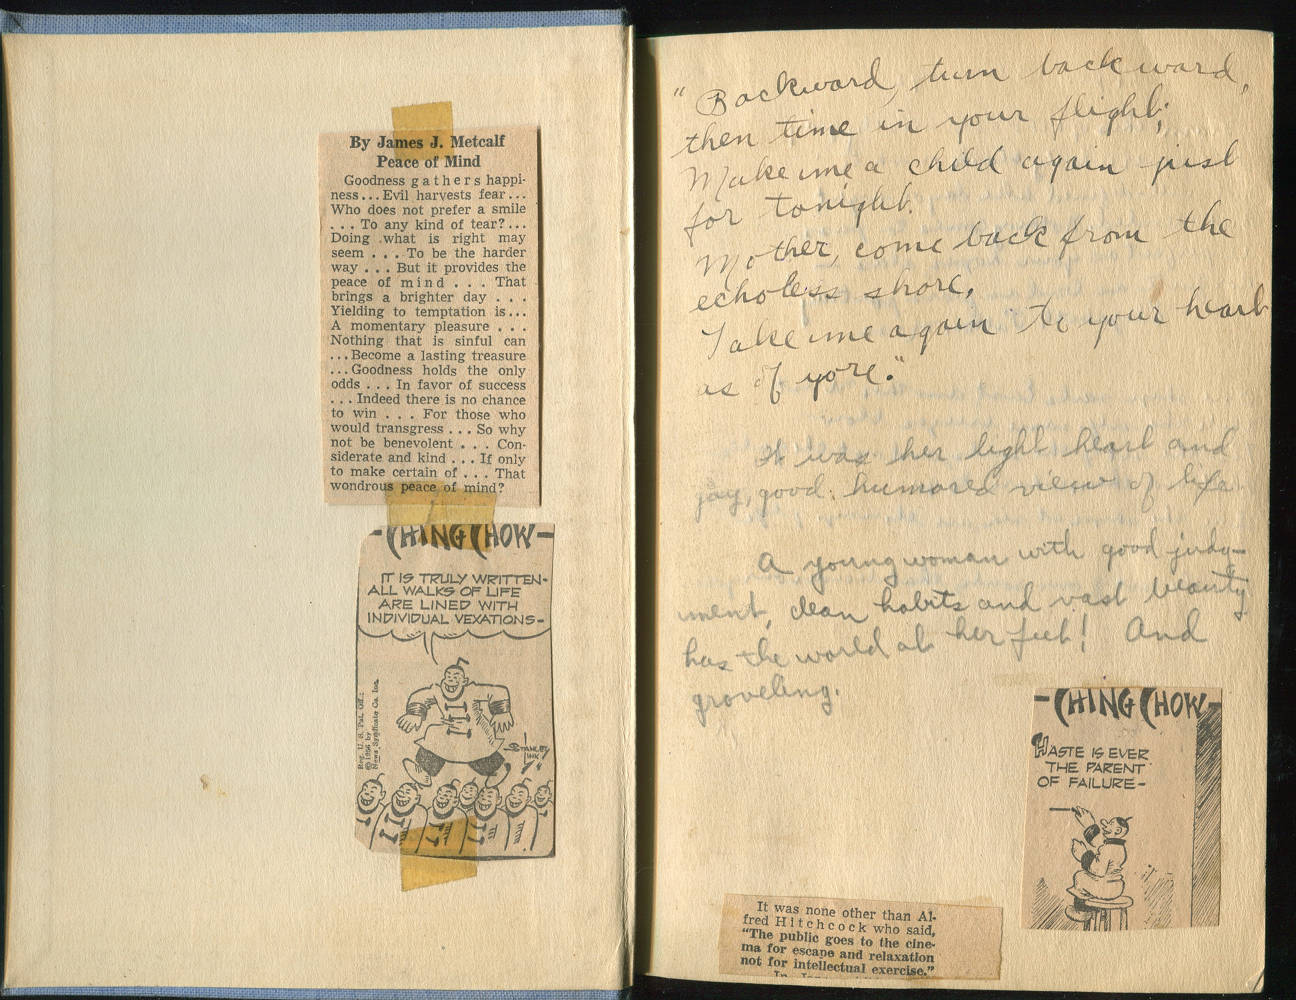 By James J. Metcalf
Peace of Mind
Goodness gathers happi-
ness...Evil harvests fear...
Who does not prefer a smile
...To any kind of tear?...
Doing what is right may
seem...To be the harder
way...But it provides the
peace of mind...That
brings a brighter day...
Yielding to temptation is...
A momentary pleasure...
Nothing that is sinful can
...Become a lasting treasure
...Goodness holds the only
odds...In favor of success
...Indeed there is no chance
to win...For those who
would transgress...So why
not be benevolent...Con-
siderate and kind...If only
to make certain of...That
wondrous peace of mind?
-CHING CHOW-
IT IS TRULY WRITTEN-
ALL WALKS OF LIFE
ARE LINED WITH
INDIVIDUAL VEXATIONS-
Reg. U. S. Pat. Off.:
© 1956 by
News Syndicate Co. Inc.
STANLEY
LINK
"Backward, turn backward,
then time in your flight;
Make me a child again just
for tonight.
Mother, come back from the
echoless shore,
Take me again to your heart
as of yore."
It was her light heart and
gay, good humored view of life
A young woman with good judg-
ment, clean habits and vast beauty
has the world at her feet! And
groveling.
-CHING CHOW-
HASTE IS EVER
THE PARENT
OF FAILURE-
It was none other than Al-
fred Hitchcock who said,
"The public goes to the cine-
ma for escape and relaxation
not for intellectual exercise."